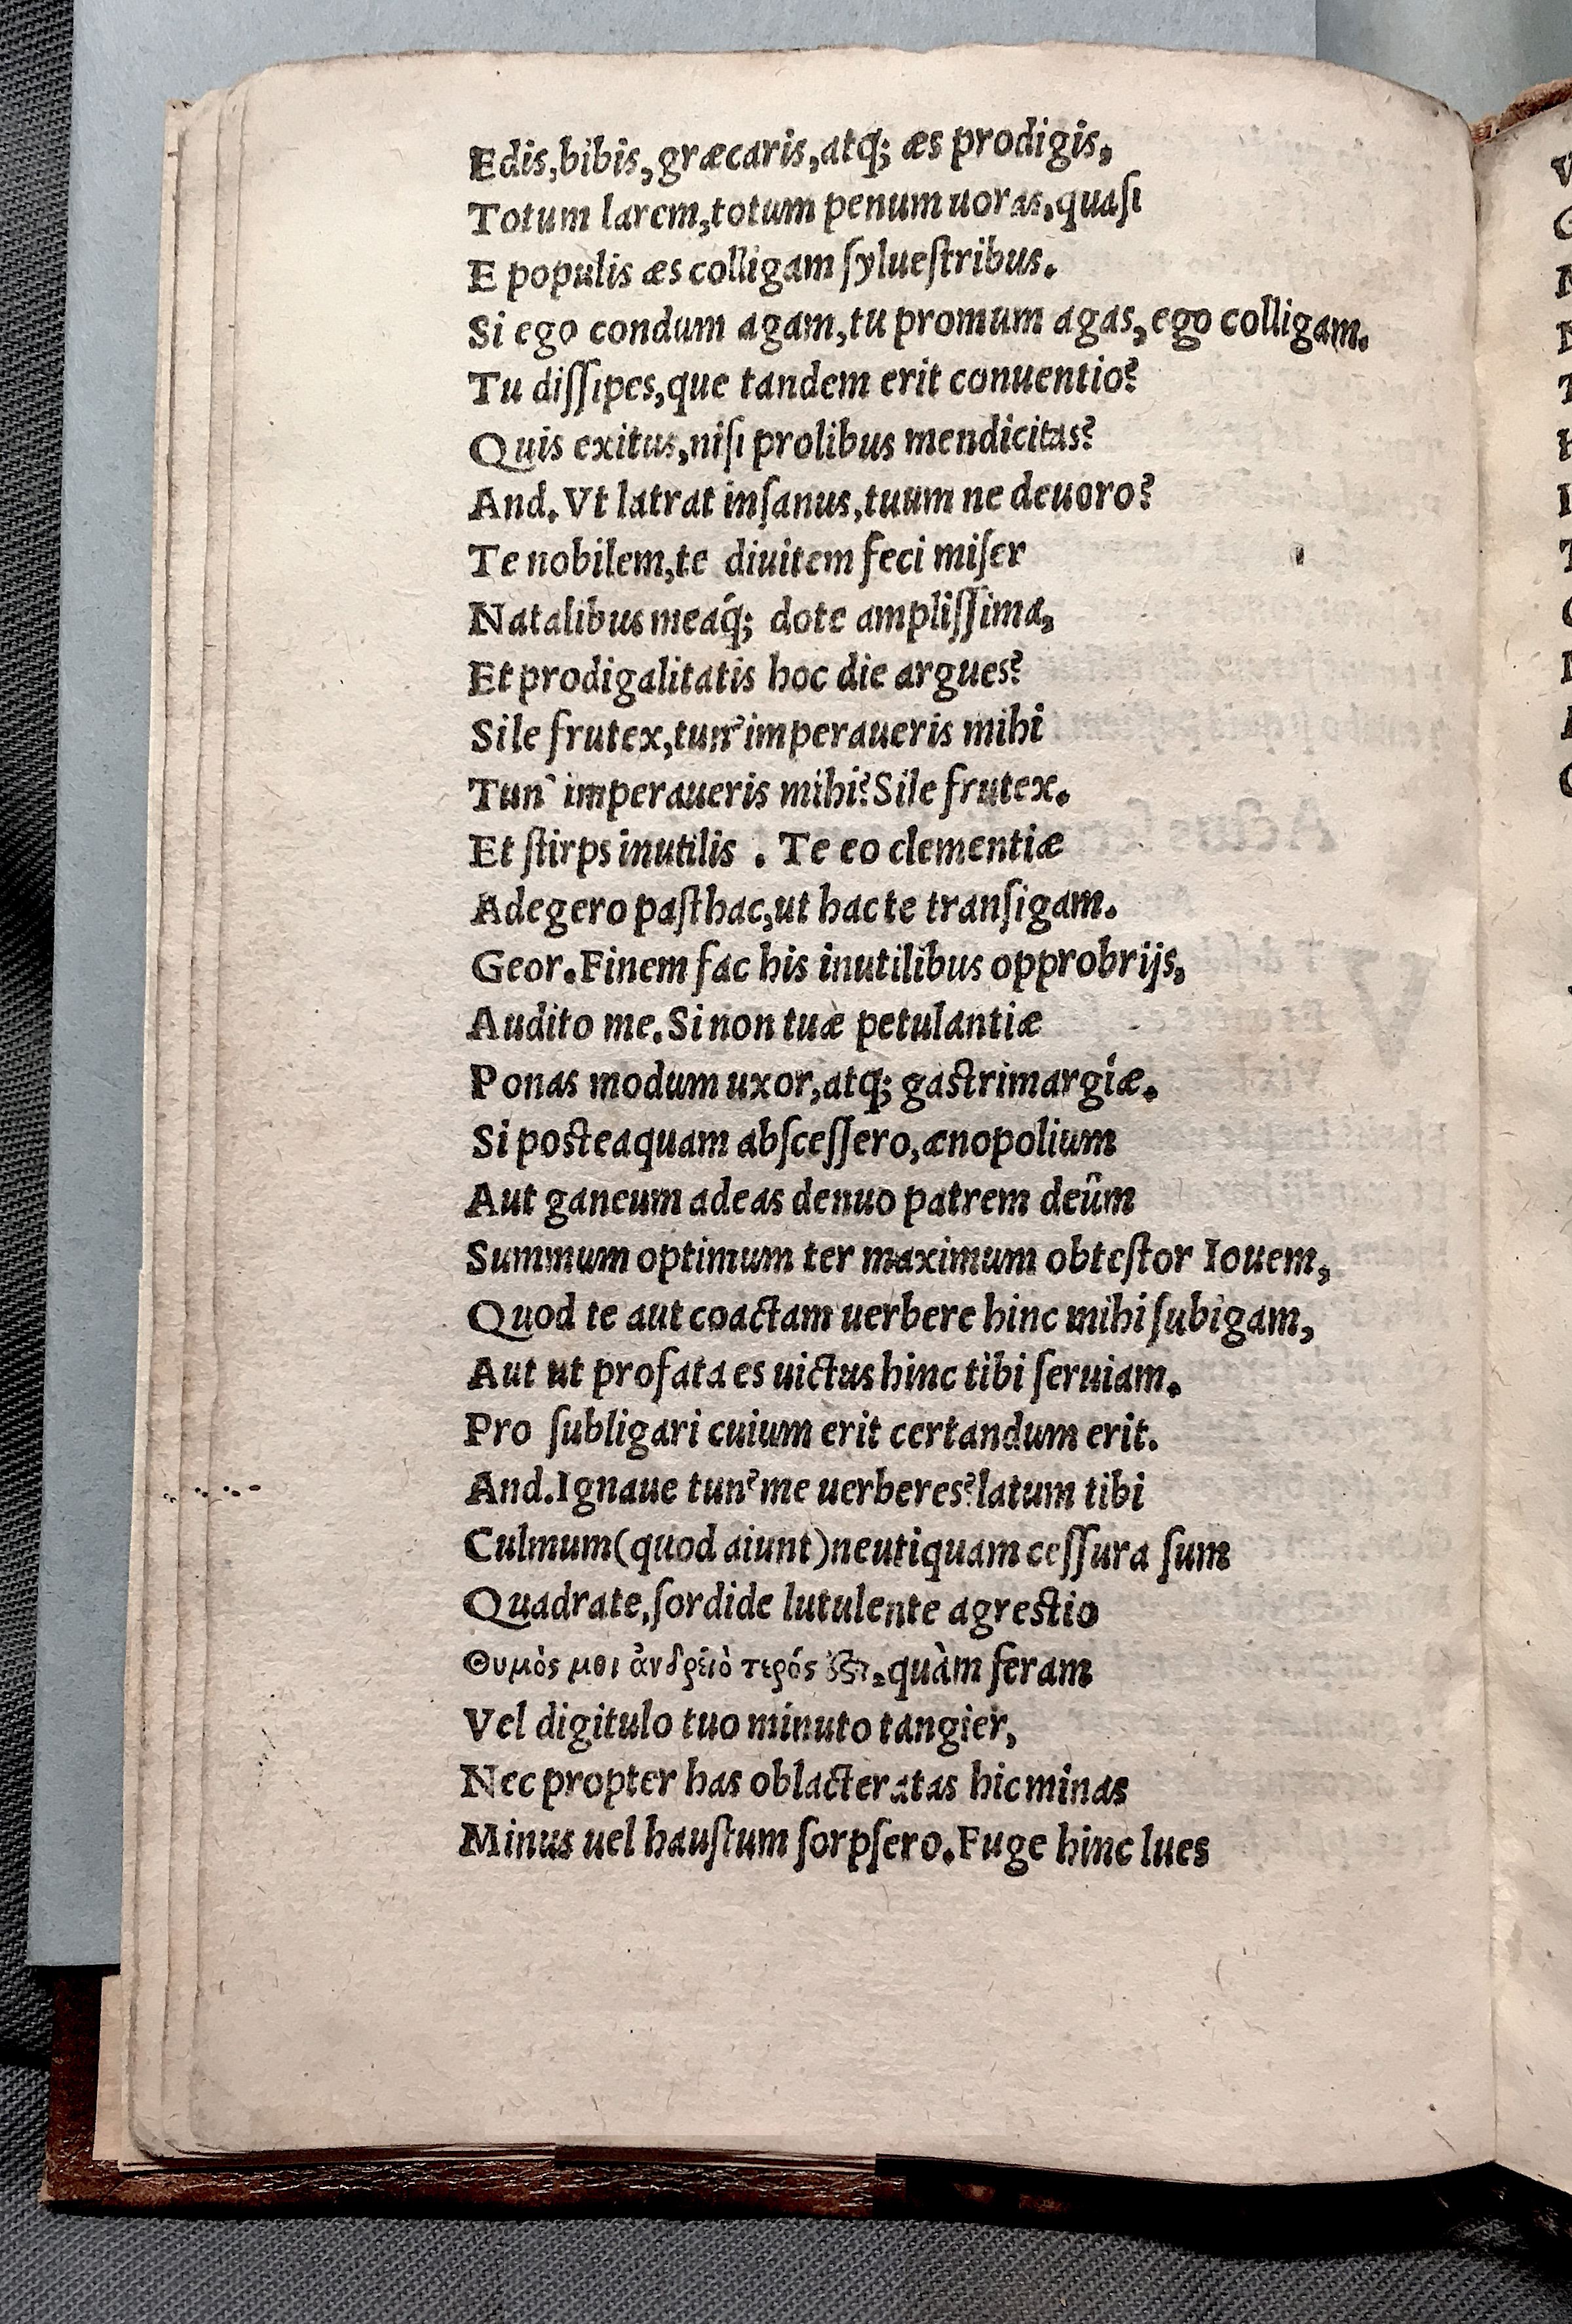 Edis,bibis,græcaris,atq; æs prodigis,
Totum larem,totum penum uoras,quaſi
E populis æs colligam ſylueſtribus.
Si ego condum agam,tu promum agas,ego colligam.
Tu diſſipes,que tandem erit conuentio?
Quis exitus,niſi prolibus mendicitas?
And.Vt latrat inſanus,tuum ne deuoro?
Te nobilem,te diuitem feci miſer
Natalibus meáq; dote ampliſſima,
Et prodigalitatis hoc die argues?
Sile frutex,tun'imperaueris mihi
Tun` imperaueris mihi?Sile frutex.
Et ſtirps inutilis . Te eo clementiæ
Adegero paſthac,ut hac te tranſigam.
Geor.Finem fac his inutilibus opprobrijs,
Audito me.Si non tuæ petulantiæ
Ponas modum uxor,atq; gastrimargíæ.
Si posteaquam abſceſſero,ænopolium
Aut ganeum adeas denuo patrem deûm
Summum optimum ter maximum obteſtor Iouem,
Quod te aut coactam uerbere hinc mihi ſubigam,
Aut ut profata es uictus hinc tibi ſeruiam.
Pro ſubligari cuium erit certandum erit.
And.Ignaue tun'me uerberes?latum tibi
Culmum(quod aiunt)neutiquam ceſſura ſum
Quadrate,ſordide lutulente agrestio
Θυμὸς μοι ἀνδρειὸ τερός quàm feram
Vel digitulo tuo minuto tangier,
Nec propter has oblacteratas hic minas
Minus uel hauſtum ſorpſero.Fuge hinc lues